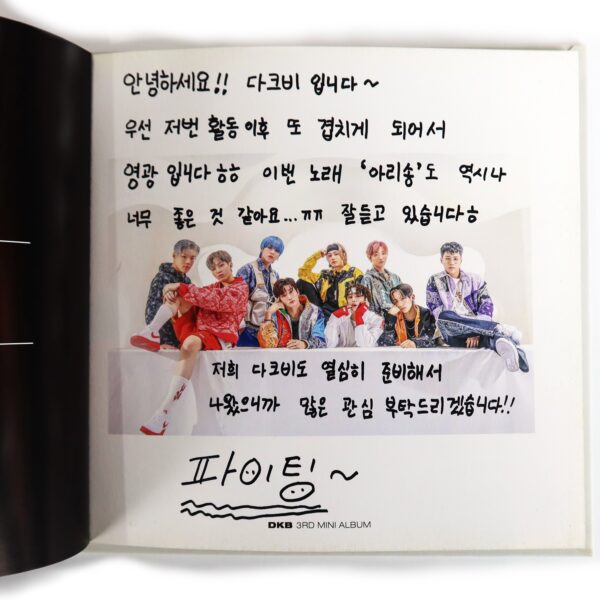 안녕하세요!! 다크비 입니다~
우선 저번 활동이후 또 겹치게 되어서
영광 입니다ㅎㅎ 이번 노래 '아리송'도 역시나
너무 좋은 것 같아요...ㅠㅠ 잘듣고 있습니다ㅎ
저희 다크비도 열심히 준비해서
나왔으니까 많은 관심 부탁드리겠습니다!!
파이팅~
DKB 3RD MINI ALBUM